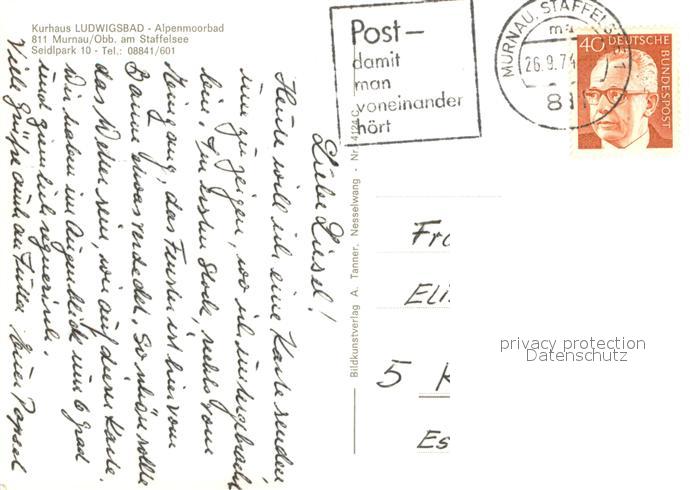 Kurhaus LUDWIGSBAD - Alpenmoorbad
811 Murnau/Obb. am Staffelsee
Seidlpark 10 - Tel.: 08841/601
Post—
damit
man
voneinander
hört
MURNAU, STAFFELSEE 1
ma
26.9.74
811
40 DEUTSCHE
BUNDESPOST
Liebe Liesel!
Heute will ich eine Karte senden
um zu zeigen, wo ich untergebracht
bin. Im ersten Stock, rechts vom
Eingang, das Fenster ist hier vom
Baum etwas verdeckt. So schön sollte
das Wetter sein, wie auf dieser Karte.
Wir haben im Augenblick um 6 Grad
und ziemlich regnerisch.
Viele Grüße auch an
Bildkunstverlag A. Tanner, Nesselwang - Nr. 4124 C
Fra
Elis
5 K
Es
privacy protection
Datenschutz